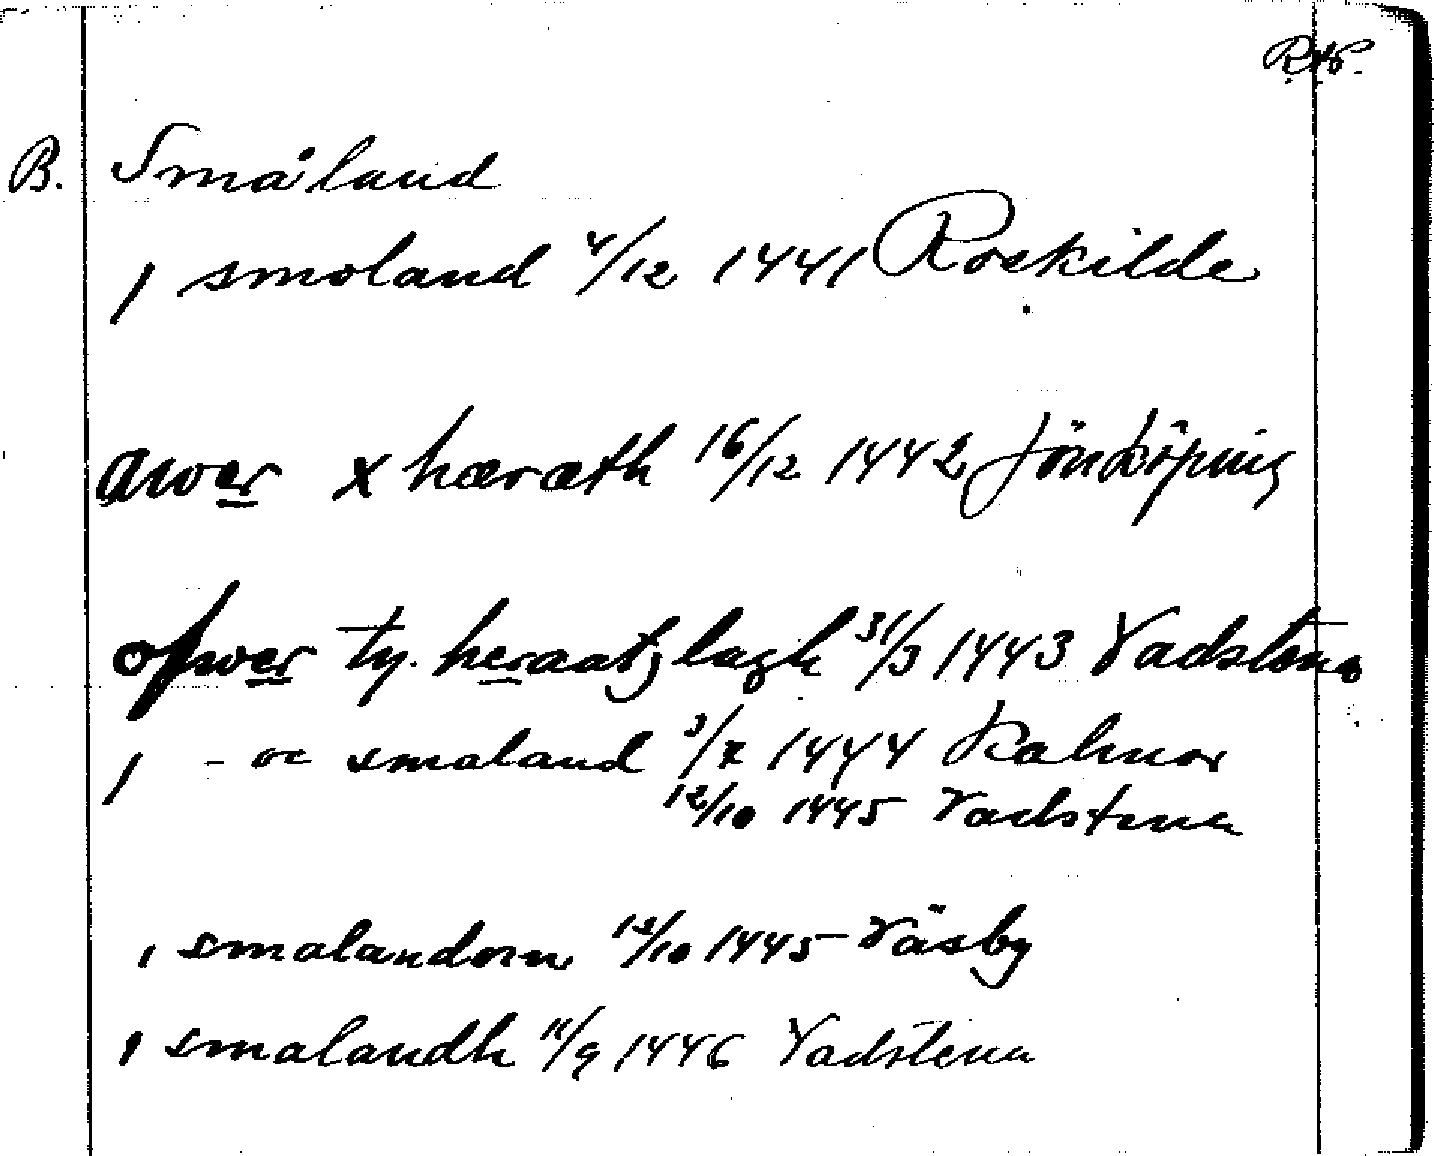 RAP.
B. Småland
j smoland 4/12 1441 Roskilde
awer x hæræth 16/12 1442 Jönköping
ofwer ty. heraatz lagh 31/3 1443 Vadstena
j - oc smaland 3/X 1444 Kalmar
12/10 1445 Vadstena
i smalandom 13/10 1445 Väsby
i smalandh 11/9 1446 Vadstena